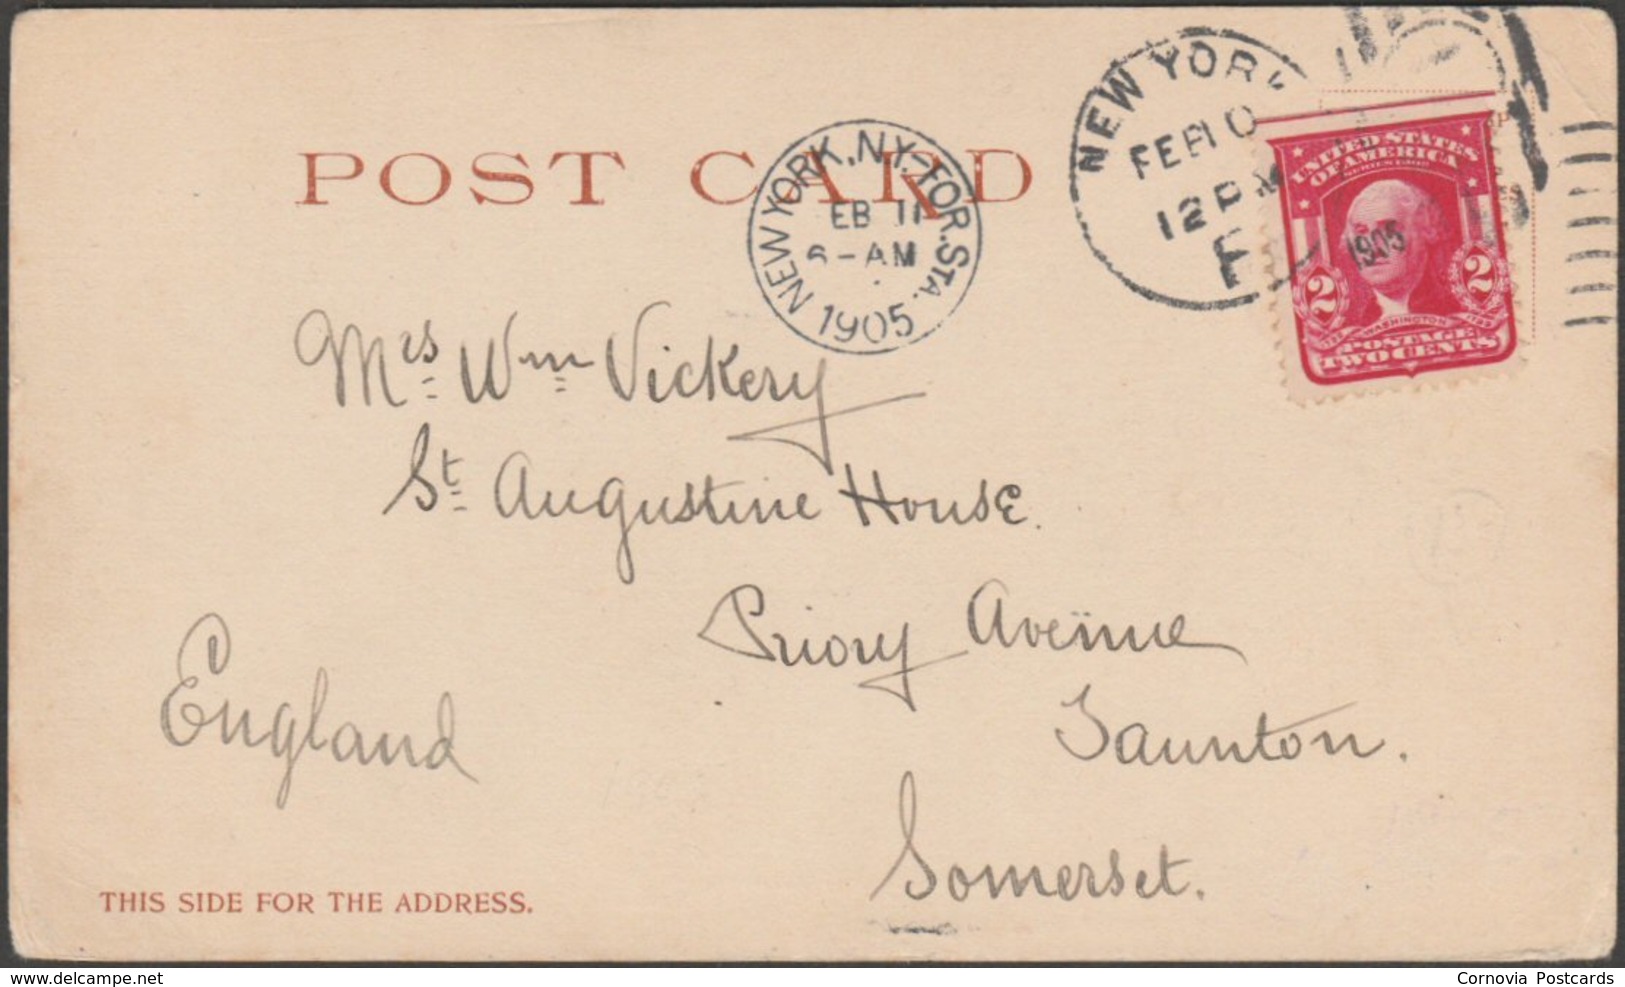 POST CARD
NEW YORK, N.Y.-FOR. STA.
EB 11
6-AM
1905
NEW YORK
FEB 10
12 PM
1905
UNITED STATES
OF AMERICA
SERIES 1902
2 2
WASHINGTON
POSTAGE
TWO CENTS
Mrs Wm Vickery
St Augustine House.
Priory Avenue
Taunton.
Somerset.
England
THIS SIDE FOR THE ADDRESS.
www.delcampe.net
Cornovia Postcards